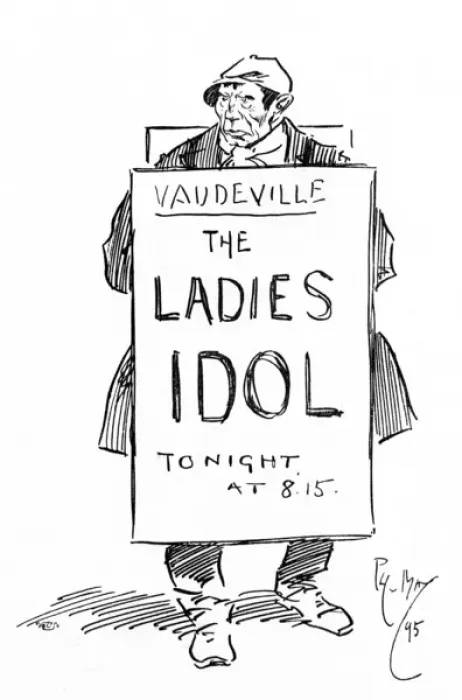 VAUDEVILLE
THE
LADIES
IDOL
TONIGHT.
AT 8.15.
Phil May
95